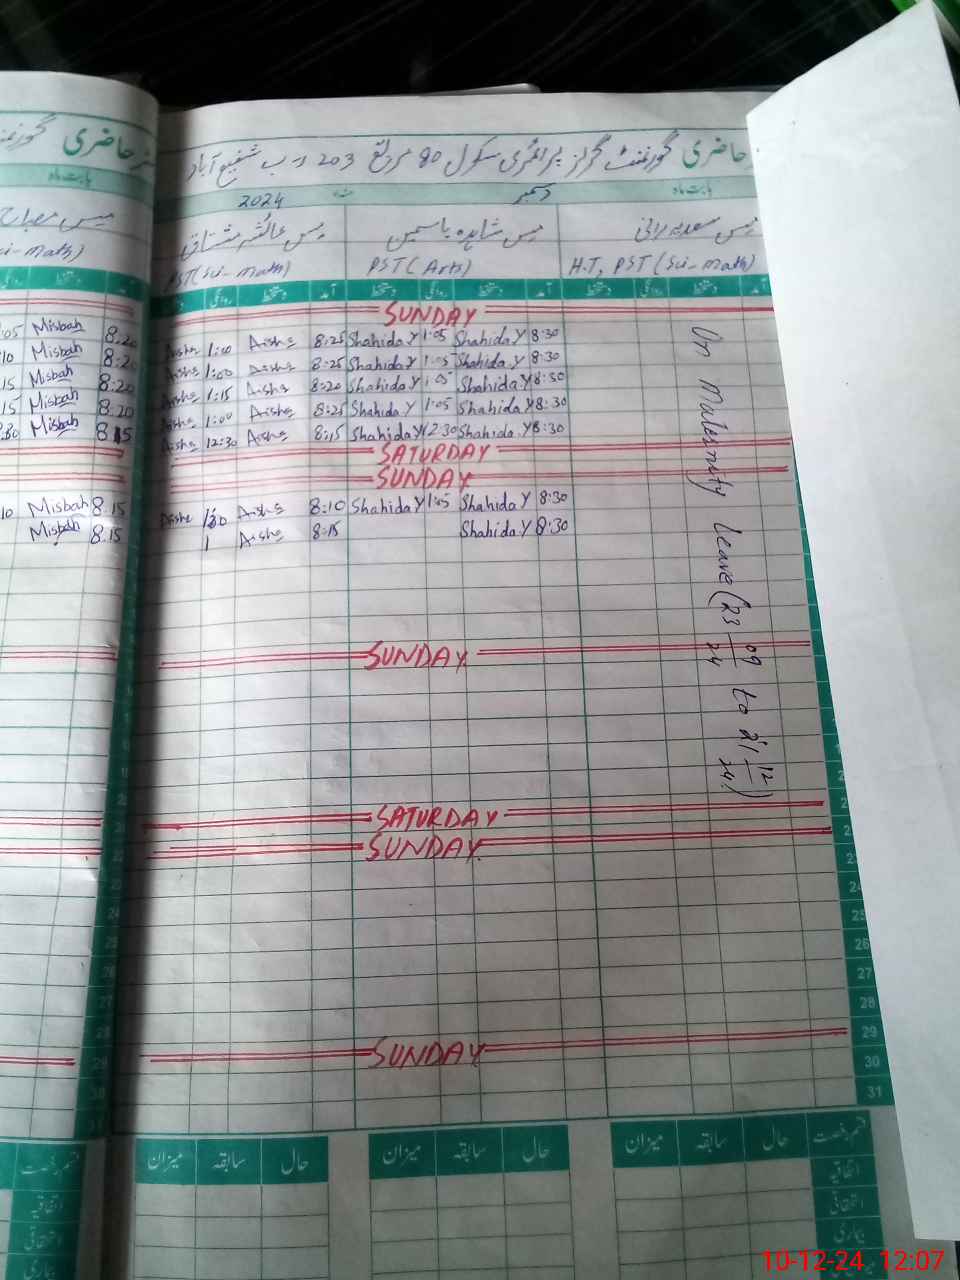 حاضری گورنمنٹ گرلز پرائمری سکول 80 مربع 203 ر۔ب شفیع آباد
بابت ماہ دسمبر 2024
مس سعدیہ رانی
مس شاہدہ یاسمین
مس عائشہ مشتاق
مس مصباح
H.T, PST (Sci-Math)
PST (Arts)
PST (Sci-Math)
ci-Math)
آمد دستخط روانگی دستخط
SUNDAY
:05 Misbah 8.20 Aisha 1:00 Aisha 8:25 Shahida.Y 1:05 Shahida.Y 8:30
10 Misbah 8:20 Aisha 1:00 Aisha 8:25 Shahida.Y 1:05 Shahida.Y 8:30
15 Misbah 8:20 Aisha 1:15 Aisha 8:20 Shahida.Y 1:05 Shahida.Y 8:30
15 Misbah 8.20 Aisha 1:00 Aisha 8:25 Shahida.Y 1:05 Shahida.Y 8:30
:30 Misbah 8:15 Aisha 12:30 Aisha 8:15 Shahida.Y 12:30 Shahida.Y 8:30
SATURDAY
SUNDAY
10 Misbah 8.15 Aisha Aisha 8:10 Shahida.Y 1:05 Shahida.Y 8:30
Misbah 8.15 1 Aisha 8:15 Shahida.Y 8:30
On Maternity leave (23 09 24 to 21 12 24)
SUNDAY
SATURDAY
SUNDAY
24
25
26
27
28
29
SUNDAY
30
31
قسم رخصت حال سابقہ میزان حال سابقہ میزان حال سابقہ میزان
اتفاقیہ
استحقاقی
بیماری
10-12-24 12:07